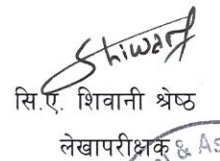 Shiwani
सि.ए. शिवानी श्रेष्ठ
लेखापरीक्षक
& As